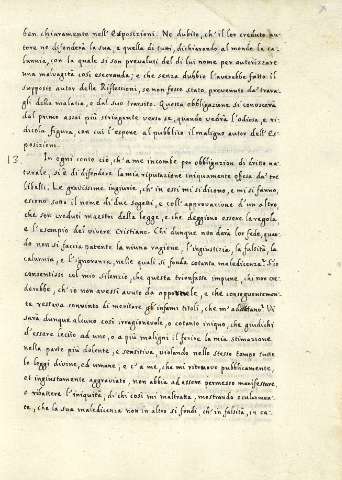 ben chiaramente nell' Esposizioni. Ne dubito, ch' il lor creduto au-
tore no difenderà la sua, e quella di tumi, dichiarando al mondo la ca-
lunnia, con la quale si son prevaluti del di lui nome per autorizzare
una malvagità così esecranda; e che senza dubbio l'averebbe fatto il
supposto autor delle Riflessioni, se non fosse stato prevenuto da' trava-
gli della malatia, e dal suo transito. Questa obbligazione si conoscerà
dal primo assai più stringante verso se, quando vedrà l'odiosa, e ri-
dicola figura, con cui l'espone al pubblico il maligno autor dell' Es-
posizioni.
13. In ogni conto ciò, ch' a me incombe per obbligazion di dritto na-
turale, si è di defender la mia riputazione iniquamente ofesa da' tre
libelli. Le gravissime ingiurie, ch' in essi mi si dicono, e mi si fanno,
escono sotto il nome di due sogetti, e coll' approvazione d'un altro
che son creduti maestri della legge, e che deggiono essere la regola
e l'esempio del vivere Cristiano. Chi dunque non darà lor fede, quan-
do non si faccia patente la niuna ragione, l'ingiustizia, la falsità, la
calunnia, e l'ignoranza, nelle quali si fonda cotanta maledicenza? S'io
consentissi col mio silenzio, che questa trionfasse impune, chi non cre-
derebbe, ch' io non avessi avuto da opporvele, e che conseguentemen-
te restava convinto di meritare gl' infami titoli, che m' adattano? Vi
sarà dunque alcuno così irragionevole, o cotanto iniquo, che giudichi
d'essere lecito ad uno, o a più maligni il ferire la mia estimazione
nella parte più dolente, e sensitiva, violando nello stesso tempo tutte
le leggi divine, ed umane; e ch' a me, che mi ritrovo pubblicamente,
et ingiustamente aggraviato, non abbia ad essere permesso manifestare,
o ribattere l'iniquità, di chi così mi maltratta, mostrando oculatamen-
te, che la sua maledicenza non in altro si fondi, ch' in falsità, in ca-